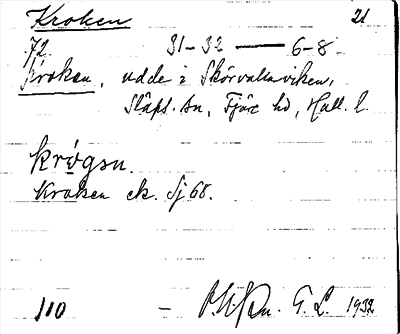 Kroken 21
72 31-32 — 6-8
Kroken, udde i Skörvallaviken,
Släps. sn, Fjäre hd, Hall. l.
krógsn.
Kroken ek. Sj 68.
110 — G. L. 1932